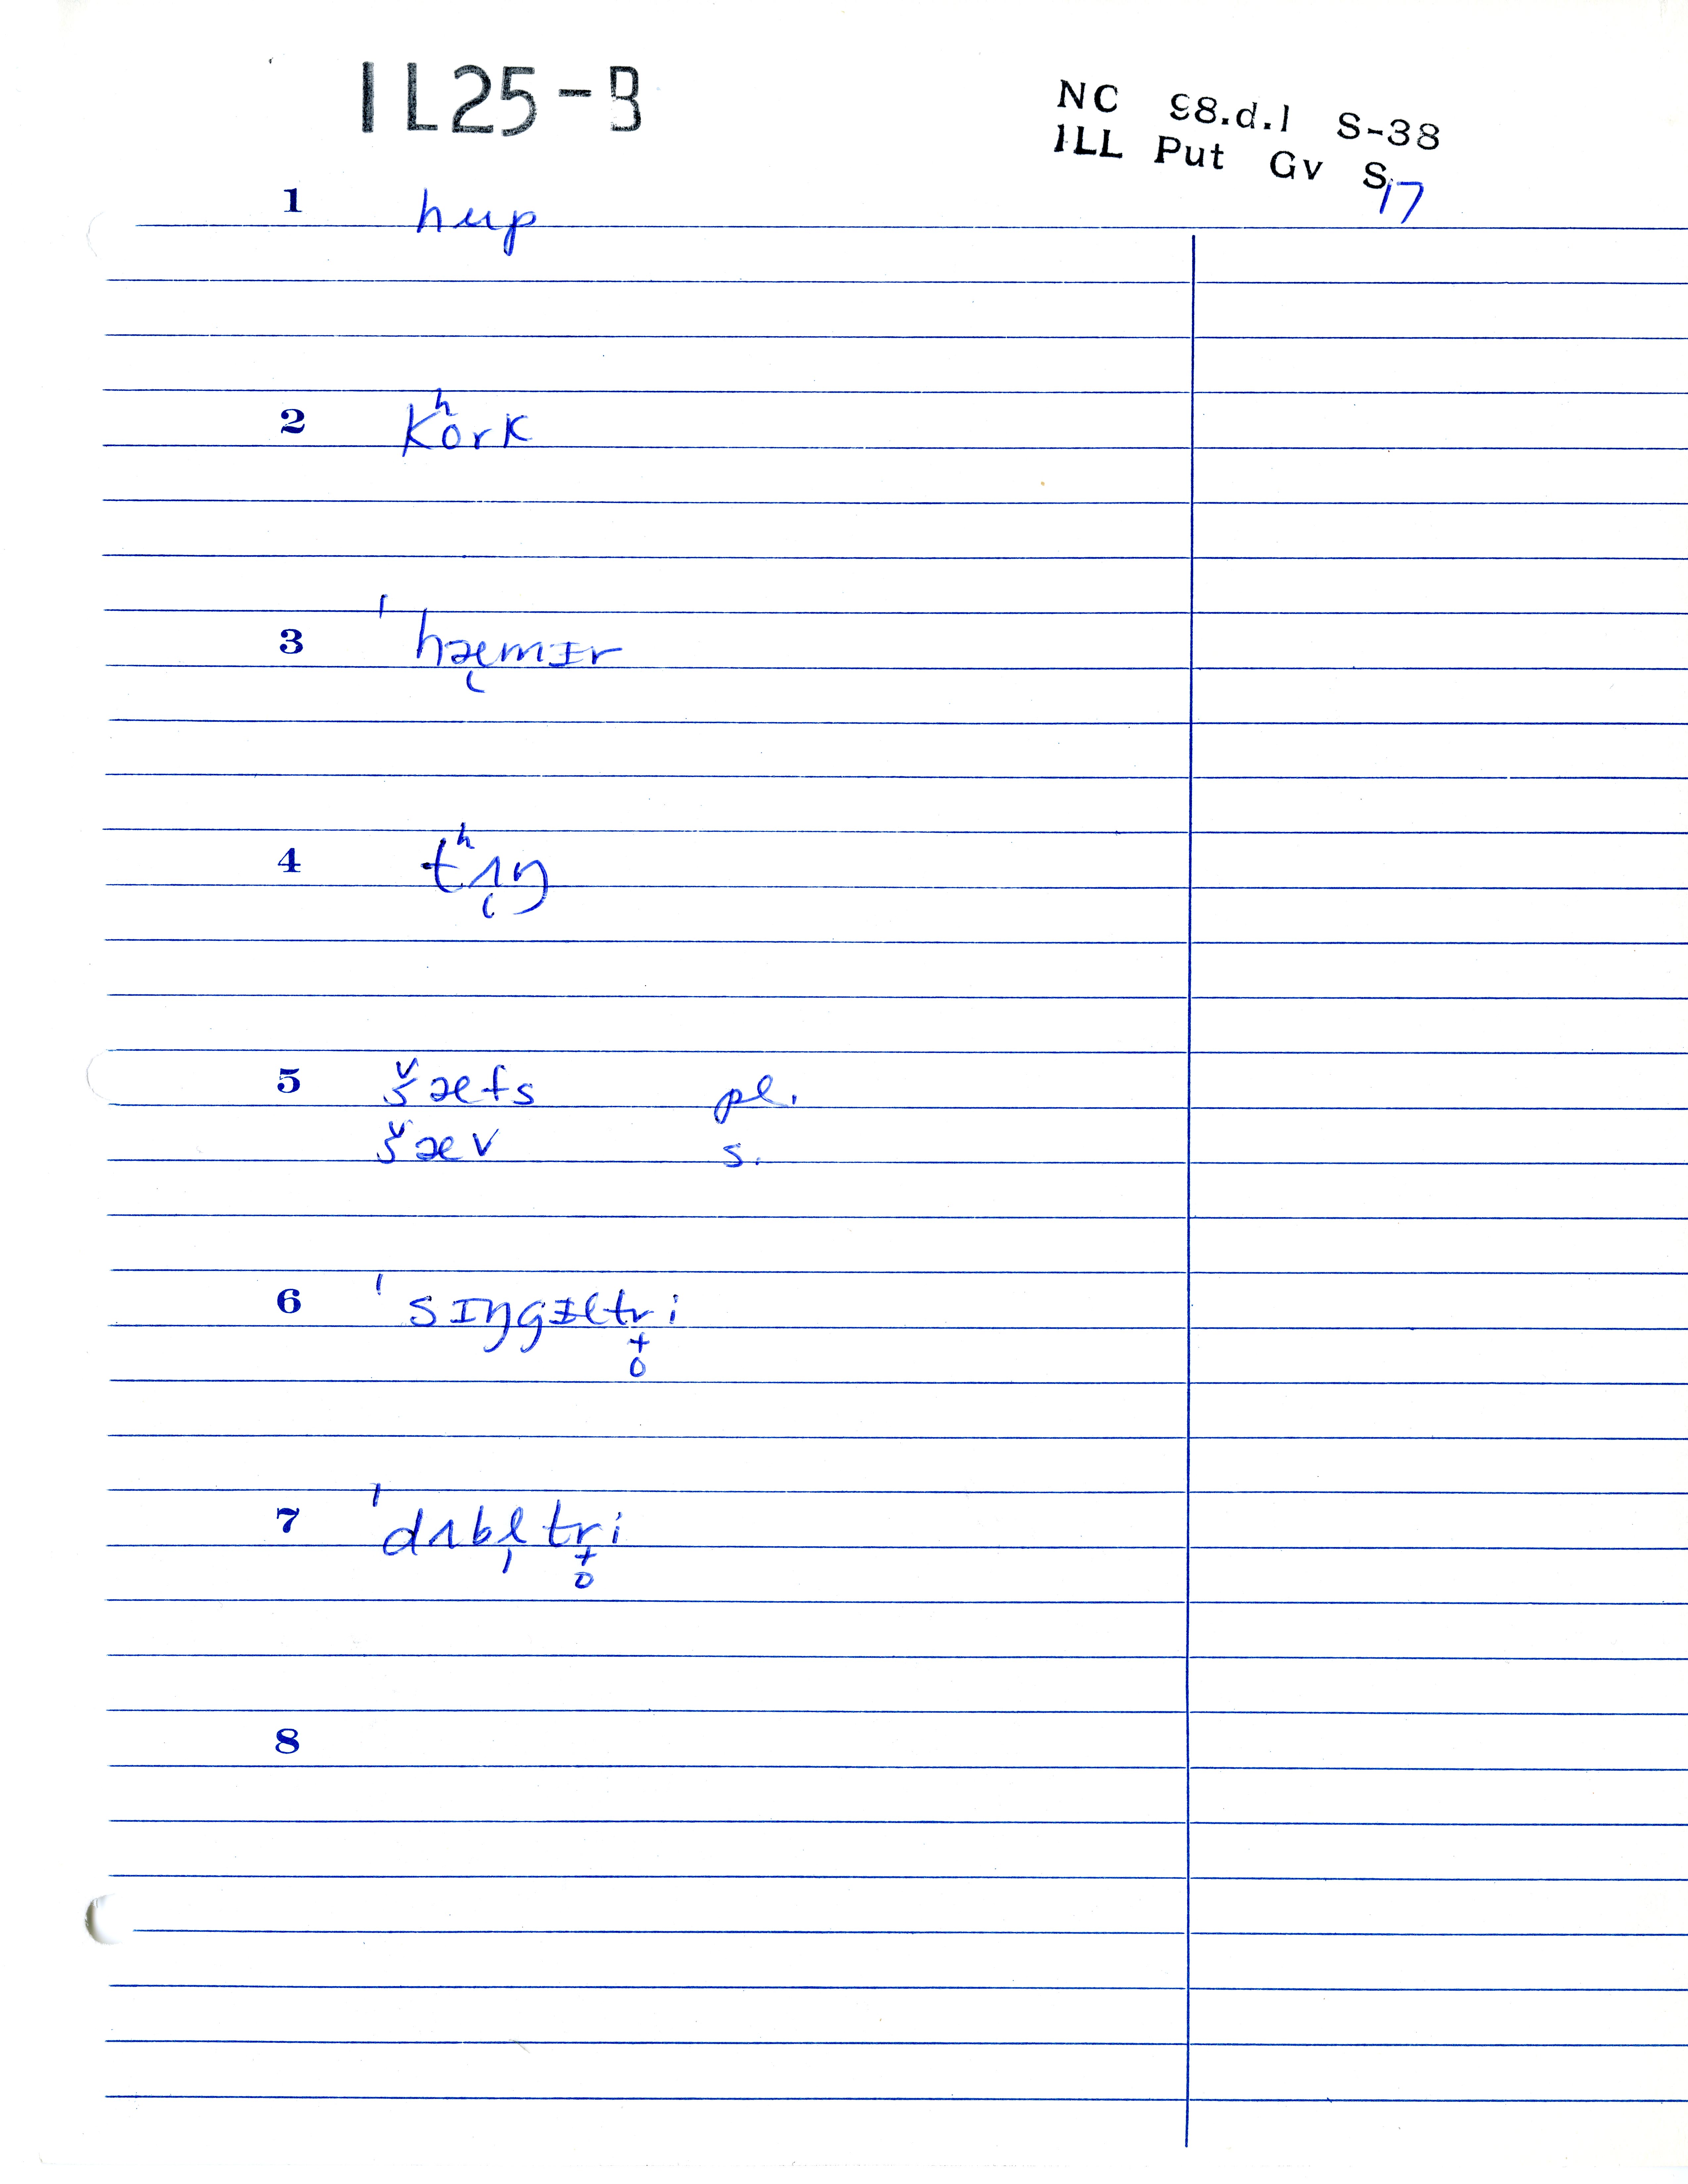 IL25-B
NC 98.d.1 S-38
ILL Put Gv S 17
1 hup
2 kʰork
3 ˈhæ̨mɪr
4 tʰʌ̨ŋ
5 šæfs pl.
šæv s.
6 ˈsɪŋgɪltr̟̥i
7 ˈdʌbl̩tr̟̥i
8